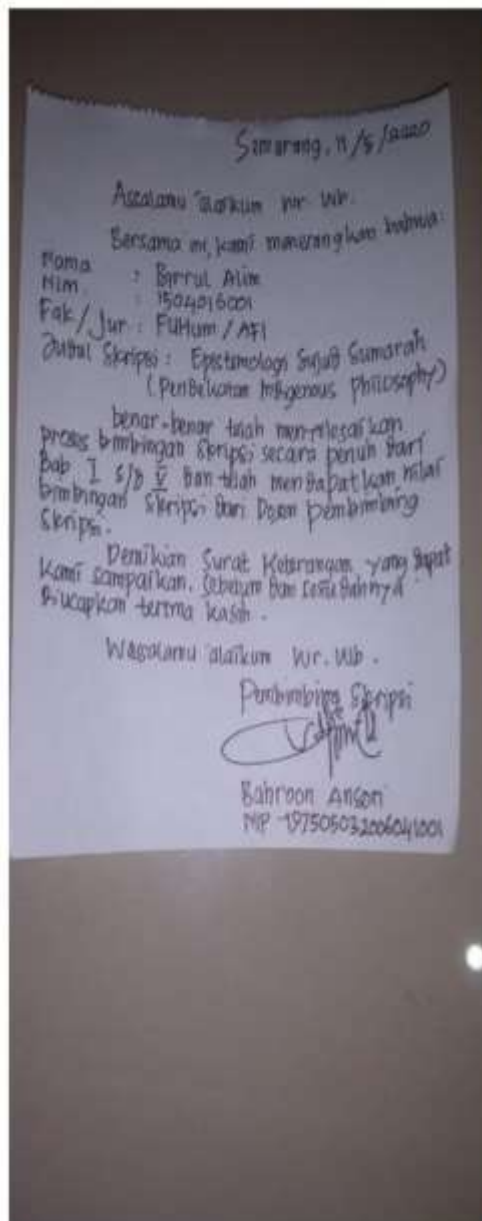 Semarang, 11/5/2020
Assalamu 'alaikum Wr. Wb.
Bersama ini, kami menerangkan bahwa:
Nama : Birrul Alim
Nim : 1504016001
Fak/Jur : FUHum / AFI
Judul Skripsi : Epistemologi Sujud Sumarah
(Pendekatan Indigenous Philosophy)
benar-benar telah menyelesaikan
proses bimbingan skripsi secara penuh dari
Bab I s/d V dan telah mendapatkan nilai
bimbingan skripsi dari Dosen pembimbing
Skripsi.
Demikian Surat Keterangan yang dapat
Kami sampaikan. Sebelum dan sesudahnya
diucapkan terima kasih.
Wassalamu 'alaikum Wr. Wb.
Pembimbing Skripsi
Bahroon Ansori
NIP 197505032006041001